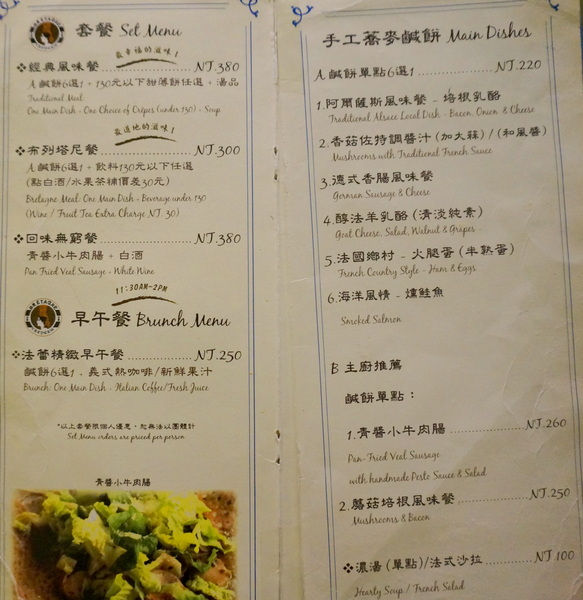 套餐 Set Menu
最幸福的滋味！
❖經典風味餐 ........................ NT.380
A.鹹餅6選1 + 130元以下甜薄餅任選 + 湯品
Traditional Meal:
One Main Dish + One Choice of Crêpes (under 130) + Soup
最道地的滋味！
❖布列塔尼餐 ........................ NT.300
A.鹹餅6選1 + 飲料130元以下任選
(點白酒/水果茶補價差30元)
Bretagne Meal: One Main Dish + Beverage under 130
(Wine / Fruit Tea Extra Charge NT. 30)
❖回味無窮餐 ........................ NT.380
青醬小牛肉腸 + 白酒
Pan Fried Veal Sausage + White Wine
11:30AM~2PM
早午餐 Brunch Menu
❖法蕾精緻早午餐 .................. NT.250
鹹餅6選1 + 義式熱咖啡/新鮮果汁
Brunch: One Main Dish + Italian Coffee/Fresh Juice
*以上套餐限個人優惠，恕無法以團體計
Set Menu orders are priced per person
青醬小牛肉腸
手工蕎麥鹹餅 Main Dishes
A.鹹餅單點6選1 ..................... NT.220
1.阿爾薩斯風味餐 - 培根乳酪
Traditional Alsace Local Dish - Bacon, Onion, & Cheese
2.香菇佐特調醬汁 (加大蒜) / (和風醬)
Mushrooms with Traditional French Sauce
3.德式香腸風味餐
German Sausage & Cheese
4.醇法羊乳酪 (清淡純素)
Goat Cheese, Salad, Walnut & Grapes
5.法國鄉村 - 火腿蛋 (半熟蛋)
French Country Style - Ham & Eggs
6.海洋風情 - 燻鮭魚
Smoked Salmon
B 主廚推薦
鹹餅單點：
1.青醬小牛肉腸 ..................... NT.260
Pan-Fried Veal Sausage
with handmade Pesto Sauce & Salad
2.蘑菇培根風味餐 .................. NT.250
Mushrooms & Bacon
❖濃湯 (單點)/法式沙拉 ............ NT.100
Hearty Soup / French Salad